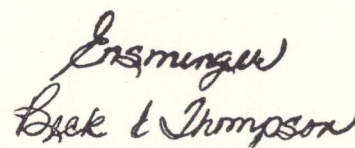 Ensminger
Beck & Thompson